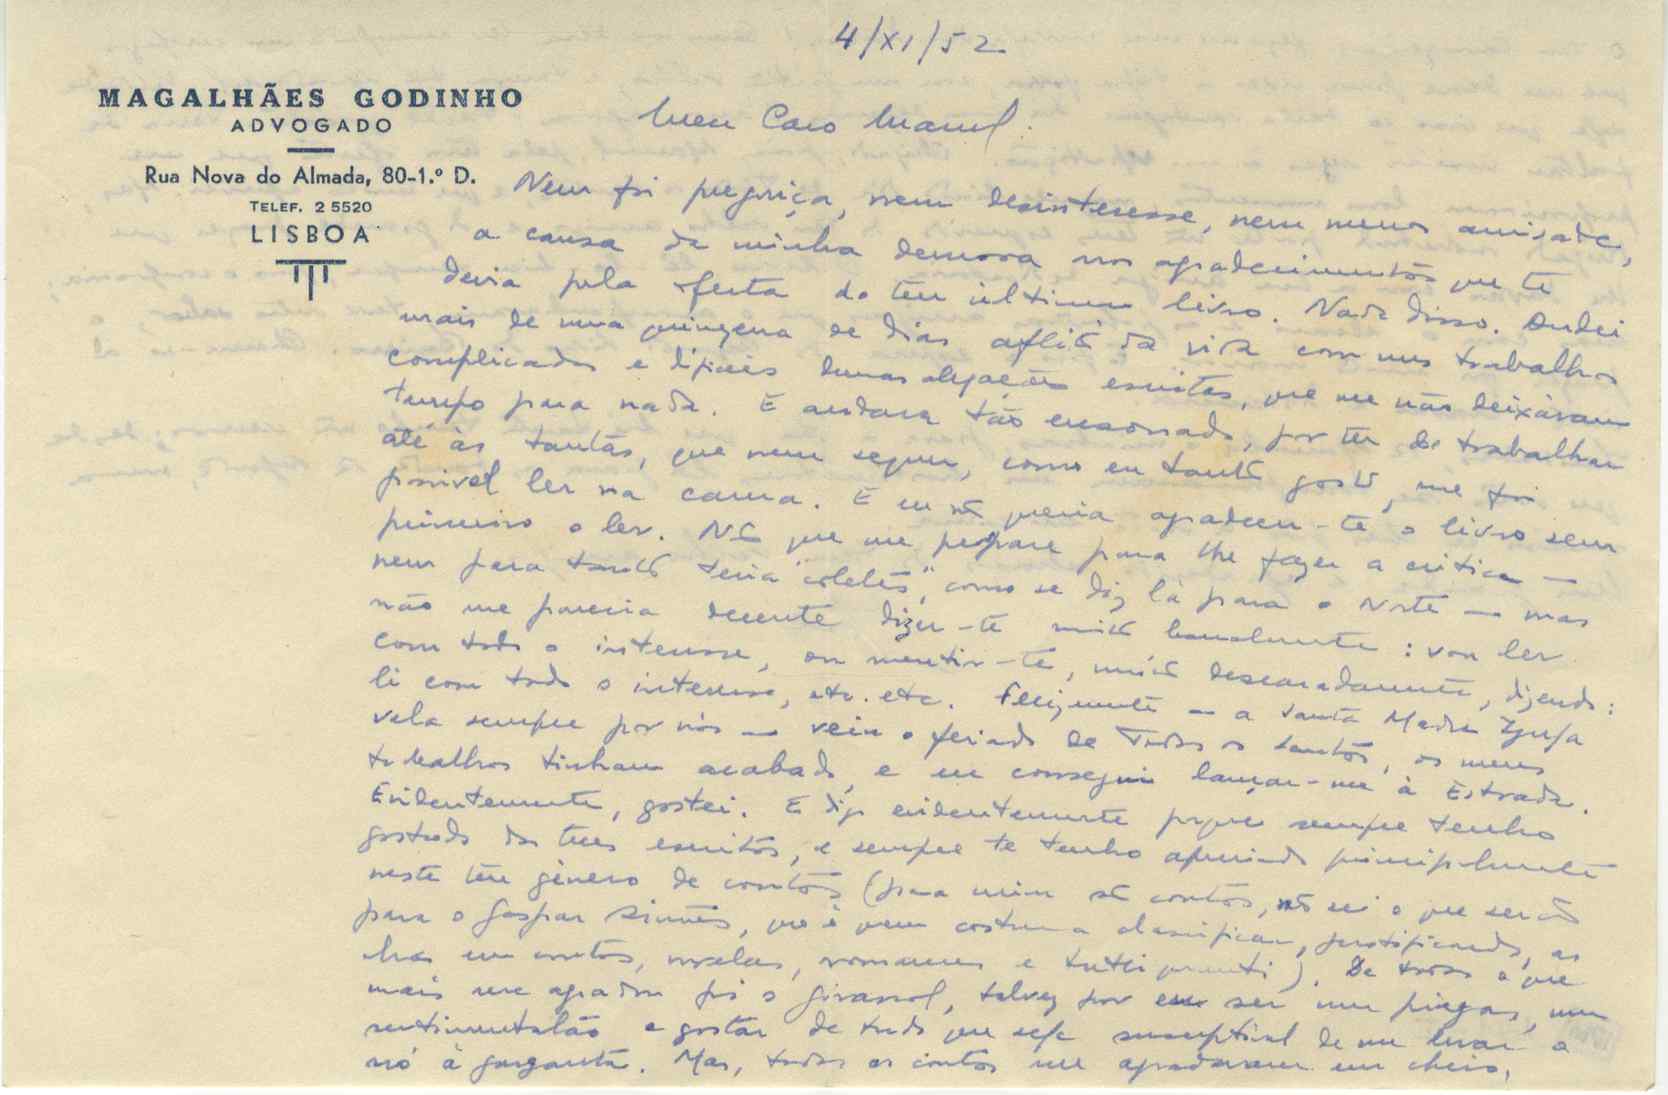 4/XI/52
MAGALHÃES GODINHO
ADVOGADO
Rua Nova do Almada, 80-1.º D.
TELEF. 2 5520
LISBOA
Meu Caro Manuel:
Nem foi preguiça, nem desinteresse, nem menos amisade,
a causa da minha demora nos agradecimentos que te
devia pela oferta do teu último livro. Nada disso. Andei
mais de uma quinzena de dias aflito da vida com uns trabalhos
complicados e difíceis dumas alegações escritas, que me não deixavam
tempo para nada. E andava tão ensonado, por ter de trabalhar
até às tantas, que nem sequer, como eu tanto gosto, me foi
possivel ler na cama. E eu não queria agradecer-te o livro sem
primeiro o ler. Não que me prepare para lhe fazer a critica —
nem para tanto teria "coletes", como se diz lá para o Norte — mas
não me parecia decente dizer-te muito banalmente: vou ler
com todo o interesse, ou mentir-te, muito descaradamente, dizendo:
li com todo o interesse, etc. etc. Felizmente — a Santa Madre Igreja
vela sempre por nós — veio o feriado de Todos os Santos, os meus
trabalhos tinham acabado, e eu consegui lançar-me à Estrada.
Evidentemente, gostei. E digo evidentemente porque sempre tenho
gostado dos teus escritos, e sempre te tenho apreciado principalmente
neste teu género de contos (para mim são contos, não sei o que serão
para o Gaspar Simões, que é quem costuma classificar, justificando, as
obras em contos, novelas, romances e tutti quanti). De todos o que
mais me agradou foi o Girassol, talvez por eu ser um piegas, um
sentimentalão e gostar de tudo que seja susceptível de me levar o
nó à garganta. Mas, todos os contos me agradaram em cheio,